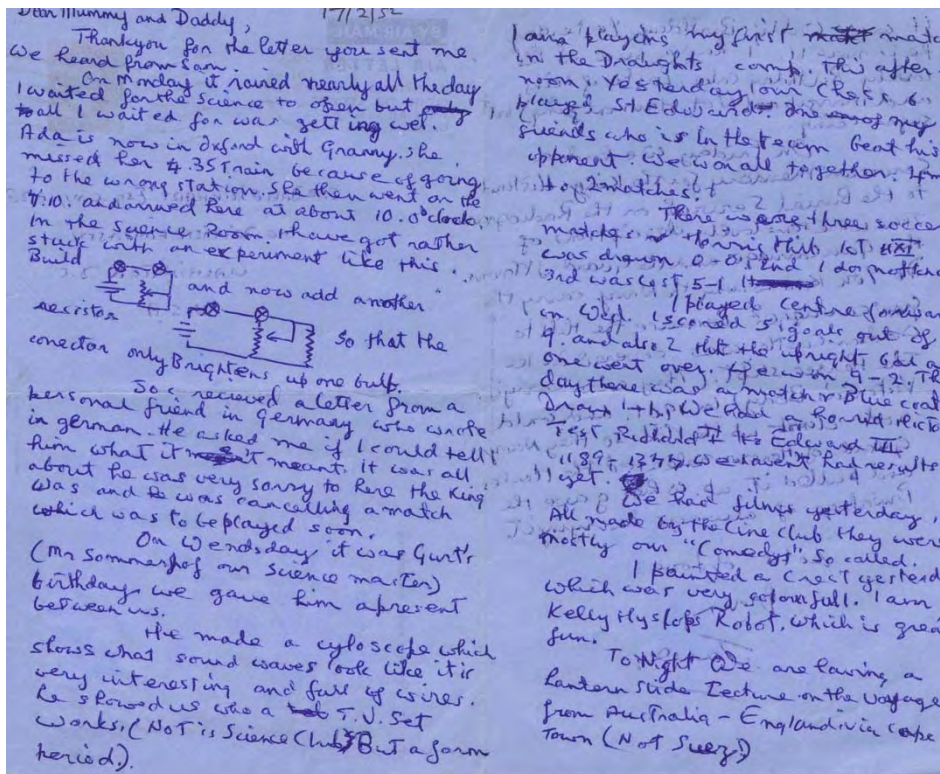 Dear Mummy and Daddy,
17/2/52
Thankyou for the letter you sent me
we heard from Sam.
On Monday it rained nearly all the day
I waited for the science to open but
all I waited for was getting wet.
Ada is now in Oxford with Granny. She
missed her 4.35 Train because of going
to the wrong station. She then went on the
7.10. and arrived here at about 10.0'clock
In the Science Room. I have got rather
stuck with an experiment like this.
Build
and now add another
recistor
so that the
conector only Brightens up one bulb.
So I recieved a letter from a
personal friend in Germany who wrote
in german. He asked me if I could tell
him what it meant. It was all
about he was very sorry to here the King
was and he was cancelling a match
which was to be played soon.
On Wendsday it was Gurt's
(Mr Sommerhof our Science master)
birthday, we gave him apresent
between us.
He made a cyloscope which
shows what sound waves look like it is
very interesting and full of wires.
he showed us who a T.V. Set
works. (Not is Science Club) But a form
period.).
I am playing my first matc
in the Draughts comp. This after
noon. Yesterday our Chess 6
played St Edward. One my
friends who is in the team beat his
opponent. We won all together. 4
to 2 matches!
There were three soccer
matches 1st
was drawn. 0-0. 2nd I do not
3rd was lost. 5-1
I played centre forwar
on Wed. I scored 5 goals out of
9. and also 2 hit the upright, but a
one went over. We won 9-2. Th
day there was a match v Blue coat
Drawn 1 We had a
Test Richard I to Edward III
1189 - we havent had results
yet.
We had films yesterday,
All made by the Cine Club they were
mostly our "Comedys", so called.
I painted a Crect yesterd
which was very colourfull. I am
Kelly Hyslops Robot. which is grea
fun.
To Night We are having a
Lantern Slide Lecture on the voyage
from Australia - England via cape
Town (Not Suez.)